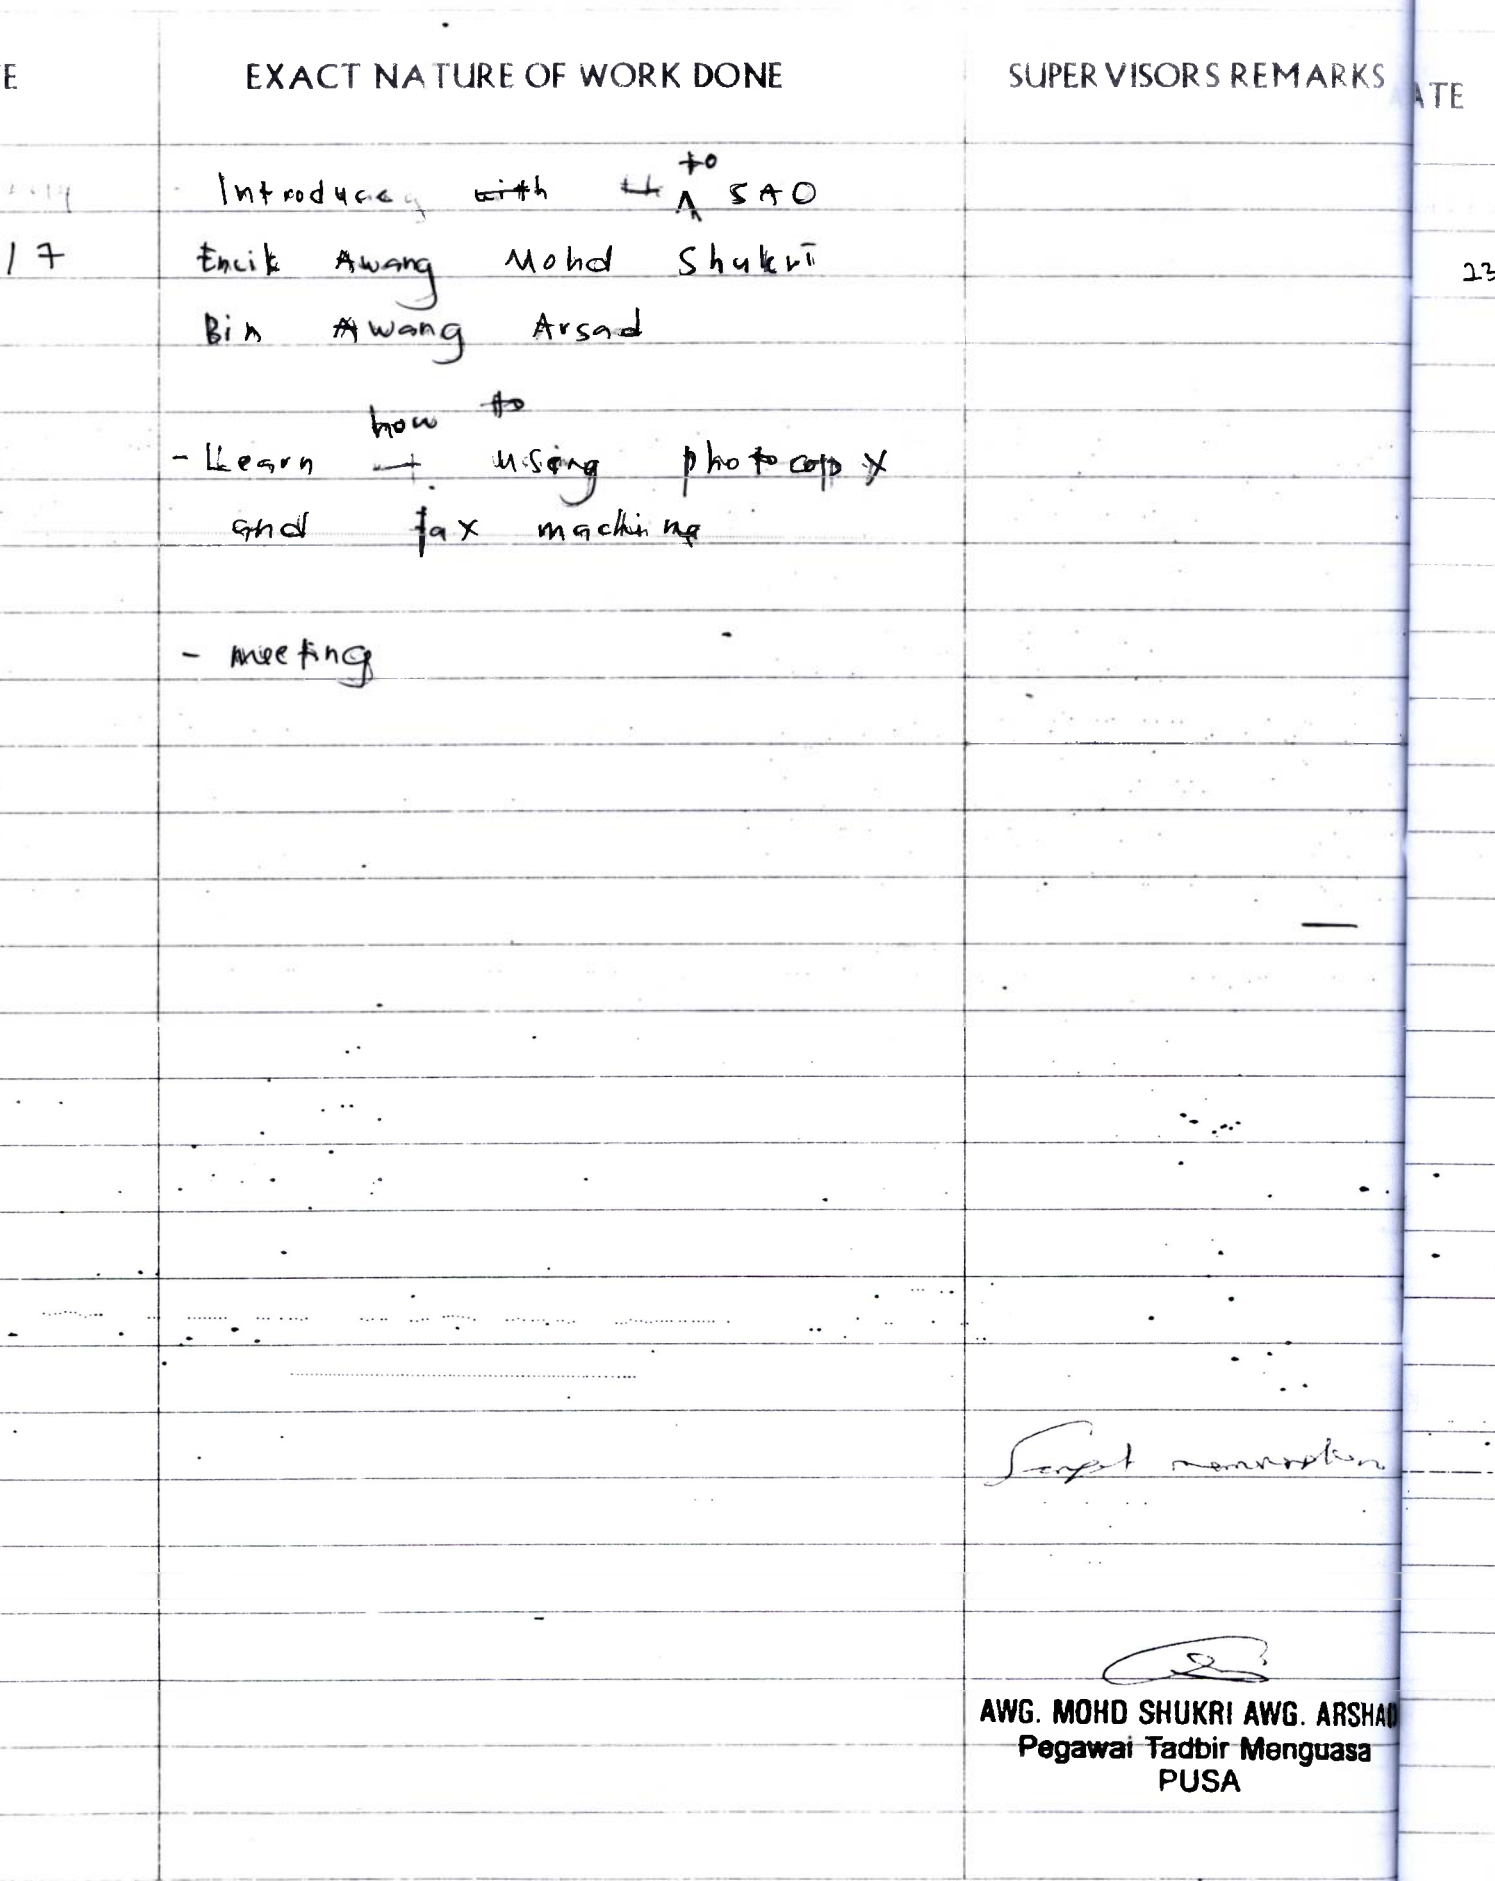 E EXACT NATURE OF WORK DONE SUPERVISORS REMARKS ATE
to
Introduce with SAO
17 Encik Awang Mohd Shukri 23
Bin Awang Arsad
how to
- Learn using photocopy
and fax machine
- meeting
Sangat memuaskan
AWG. MOHD SHUKRI AWG. ARSHAD
Pegawai Tadbir Menguasa
PUSA